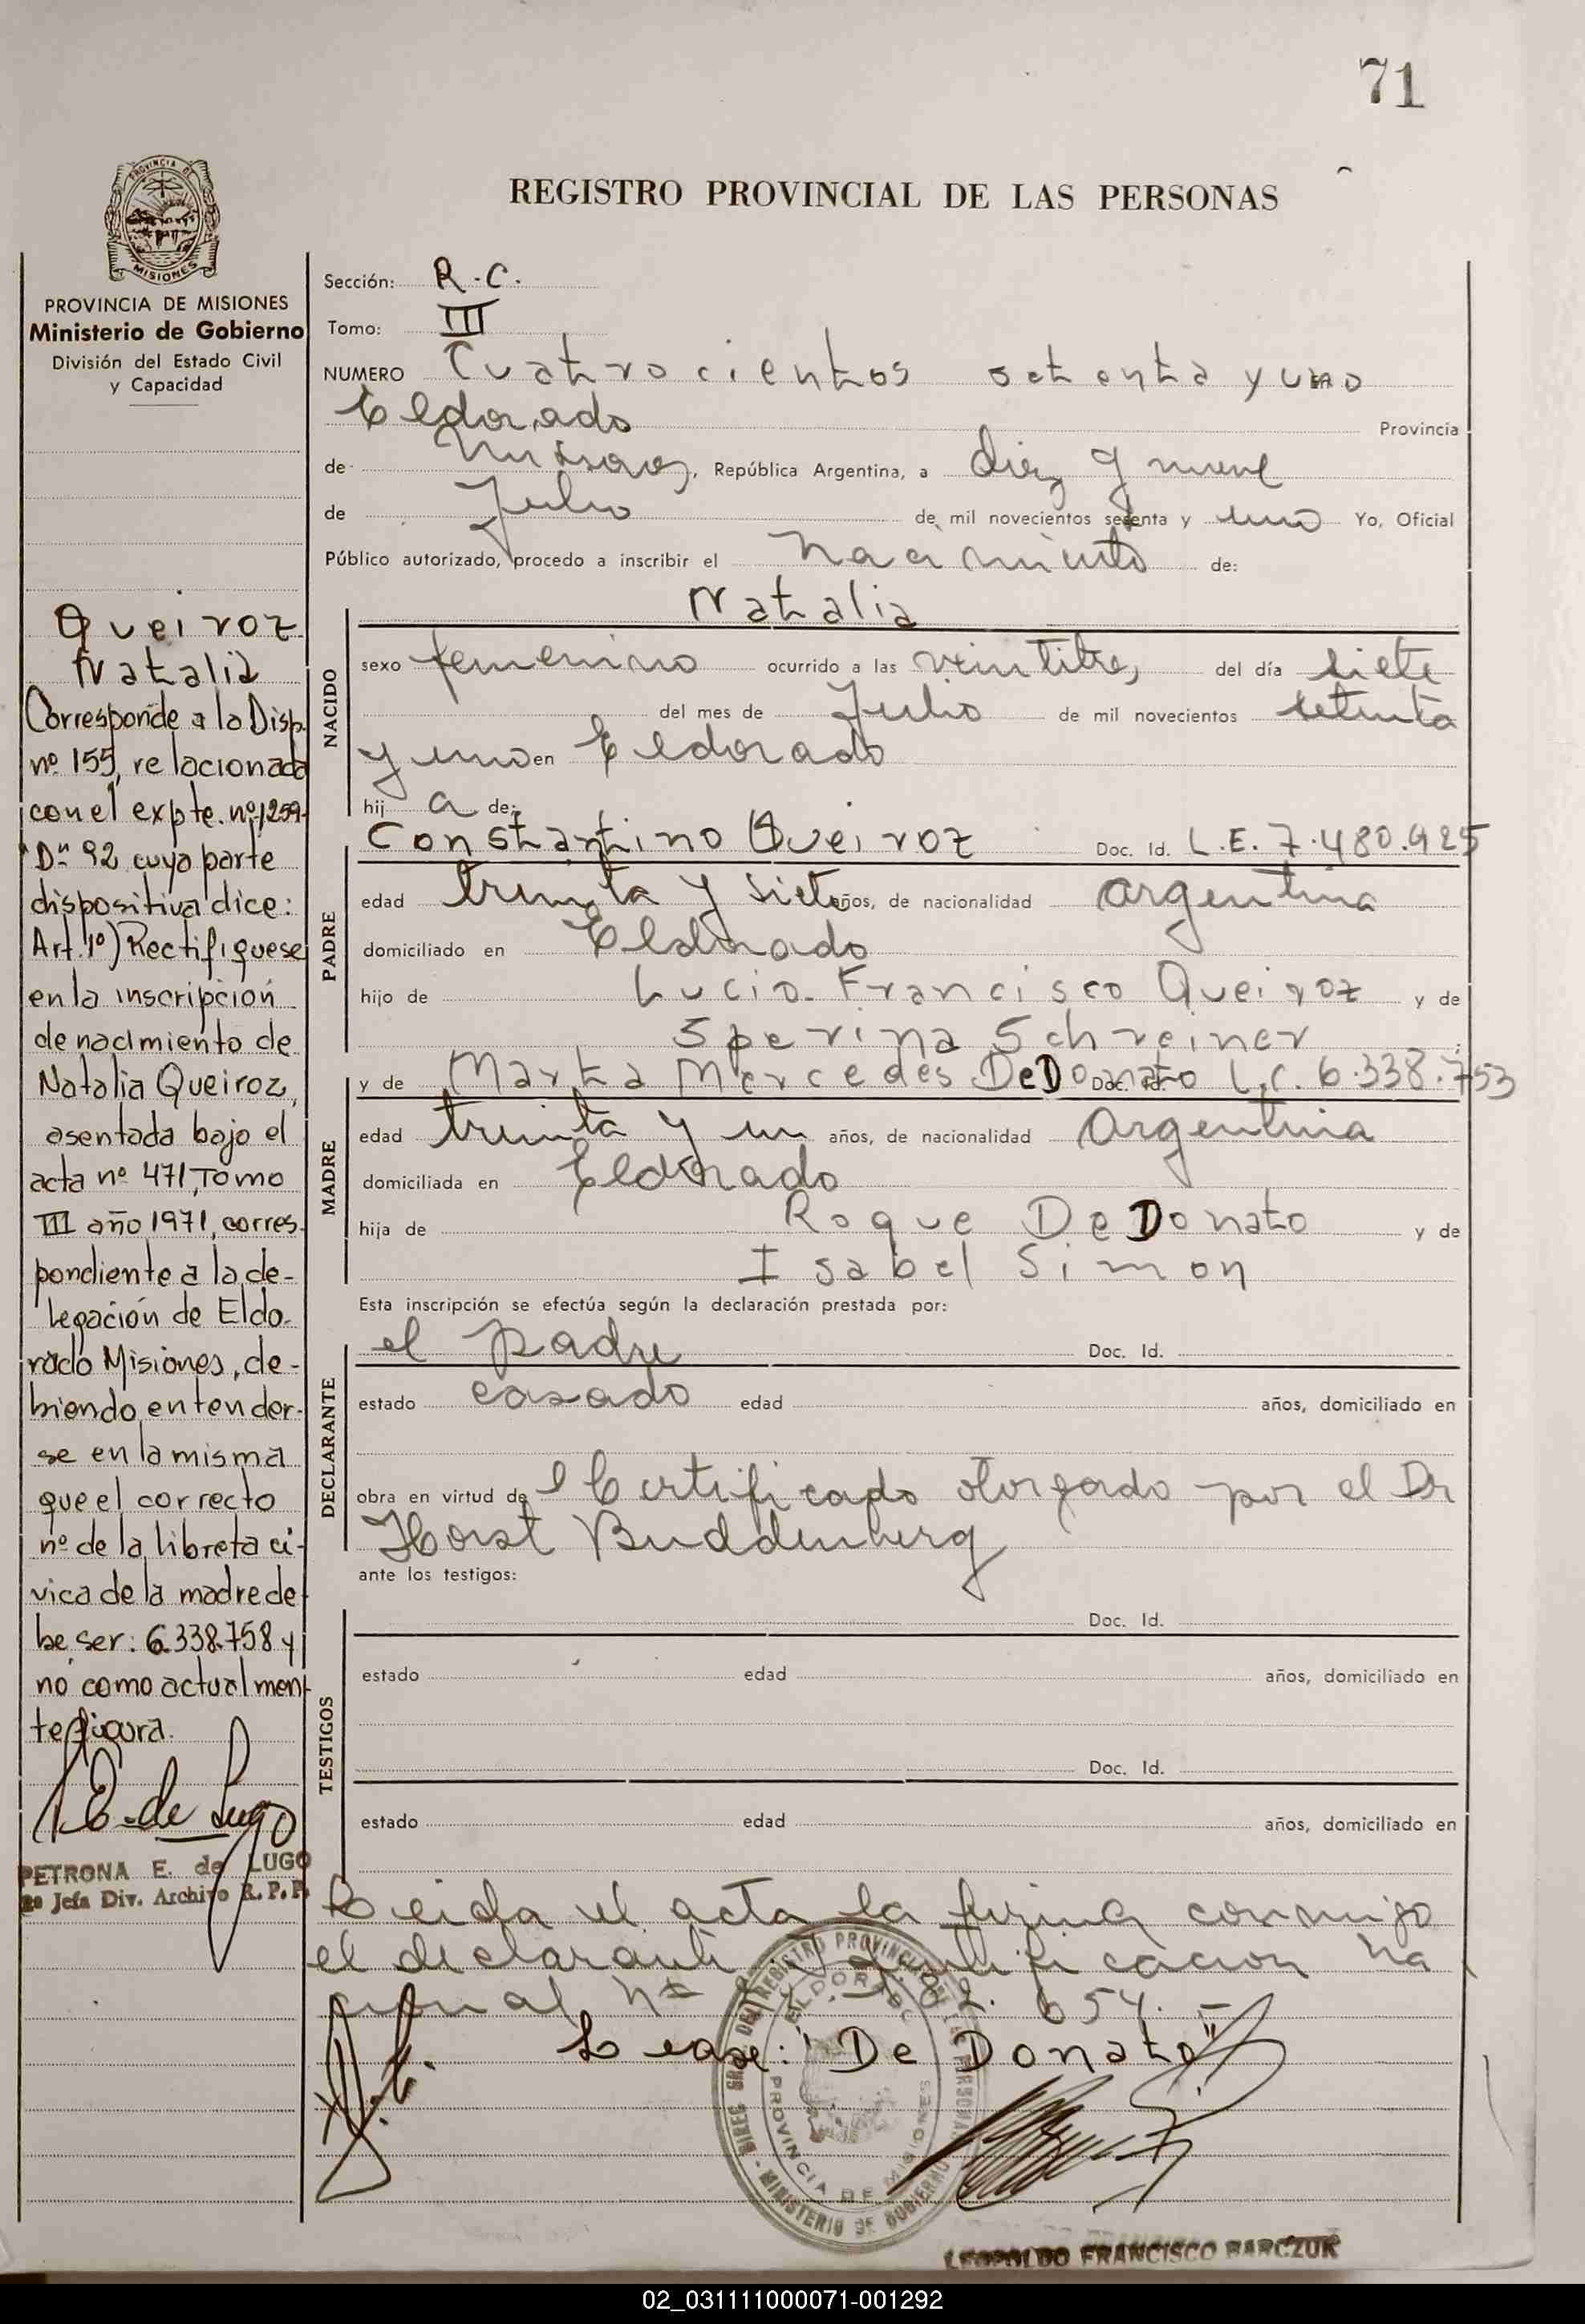 71
REGISTRO PROVINCIAL DE LAS PERSONAS
PROVINCIA DE MISIONES
PROVINCIA DE MISIONES
Ministerio de Gobierno
División del Estado Civil
y Capacidad
Queiroz
Natalia
Corresponde a la Disp.
nº 155, relacionada
con el expte. nº 1259-
"D" 92 cuya parte
dispositiva dice:
Art. 1º) Rectifiquese
en la inscripción
de nacimiento de
Natalia Queiroz,
asentada bajo el
acta nº 471, Tomo
III año 1971, corres-
pondiente a la de-
legación de Eldo-
rado Misiones, de-
biendo entender-
se en la misma
que el correcto
nº de la libreta cí-
vica de la madre de-
be ser: 6.338.758 y
no como actualmen-
te figura.
E. de Lugo
PETRONA E. de LUGO
2º Jefa Div. Archivo R.P.P.
Sección: R.C.
Tomo: III
NUMERO Cuatrocientos setenta y uno
Eldorado Provincia
de Misiones, República Argentina, a diez y nueve
de Julio de mil novecientos setenta y uno Yo, Oficial
Público autorizado, procedo a inscribir el nacimiento de:
Natalia
NACIDO
sexo femenino ocurrido a las veintitres, del día siete
del mes de Julio de mil novecientos setenta
y uno en Eldorado
hij a de:
Constantino Queiroz Doc. Id. L.E. 7.480.925
PADRE
edad treinta y siete años, de nacionalidad argentina
domiciliado en Eldorado
hijo de Lucio Francisco Queiroz y de
Sperina Schreiner
y de Marta Mercedes DeDonato Doc. Id. L.C. 6.338.753
MADRE
edad treinta y un años, de nacionalidad Argentina
domiciliada en Eldorado
hija de Roque DeDonato y de
Isabel Simon
Esta inscripción se efectúa según la declaración prestada por:
el padre Doc. Id.
DECLARANTE
estado casado edad años, domiciliado en
obra en virtud de l Certificado otorgado por el Dr
Horst Buddenberg
ante los testigos:
Doc. Id.
TESTIGOS
estado edad años, domiciliado en
Doc. Id.
estado edad años, domiciliado en
Leida el acta la firma conmigo
el declarante
654. –
Lease: "De Donato"
DIREC. GRAL. DEL REGISTRO PROVINCIAL DE LAS PERSONAS
- MINISTERIO DE GOBIERNO
ELDORADO
PROVINCIA DE MISIONES
LEOPOLDO FRANCISCO BARCZUK
02_031111000071-001292